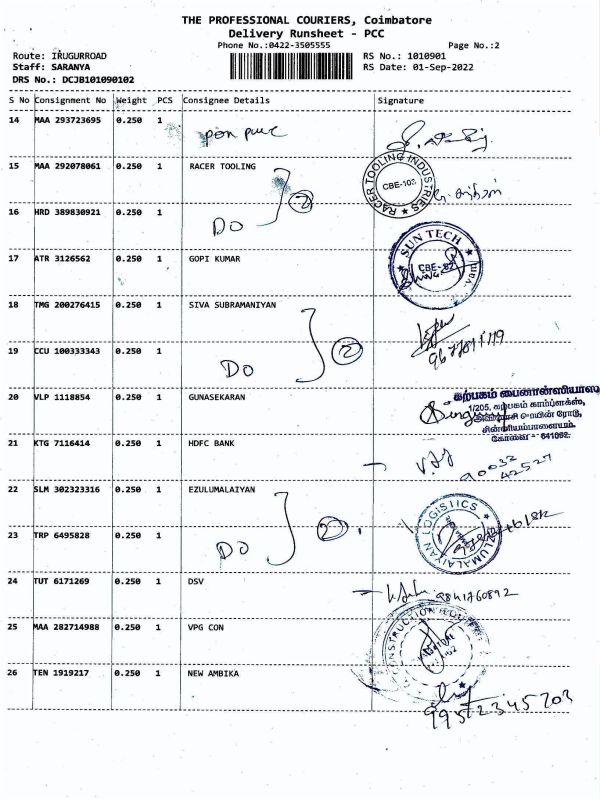 THE PROFESSIONAL COURIERS, Coimbatore
Delivery Runsheet - PCC
Phone No.:0422-3505555 Page No.:2
Route: IRUGURROAD RS No.: 1010901
Staff: SARANYA RS Date: 01-Sep-2022
DRS No.: DCJB101090102
S No Consignment No Weight PCS Consignee Details Signature
14 MAA 293723695 0.250 1
15 MAA 292078061 0.250 1 RACER TOOLING
RACER TOOLING INDUSTRIES
CBE-103
16 HRD 389830921 0.250 1 DO 2
17 ATR 3126562 0.250 1 GOPI KUMAR
SUN TECH
CBE-62
18 TMG 200276415 0.250 1 SIVA SUBRAMANIYAN
19 CCU 100333343 0.250 1 DO 2
20 VLP 1118854 0.250 1 GUNASEKARAN
கற்பகம் பைனான்ஸியர்ஸ்
1/205, கற்பகம் காம்ப்ளக்ஸ்,
மெயின் ரோடு,
சின்னியம்பாளையம்,
கோவை - 641062.
21 KTG 7116414 0.250 1 HDFC BANK
90032
42527
22 SLM 302323316 0.250 1 EZULUMALAIYAN
23 TRP 6495828 0.250 1 DO 2
LOGISTICS
24 TUT 6171269 0.250 1 DSV 9841760892
25 MAA 282714988 0.250 1 VPG CON
CONSTRUCTION
26 TEN 1919217 0.250 1 NEW AMBIKA
9952345203